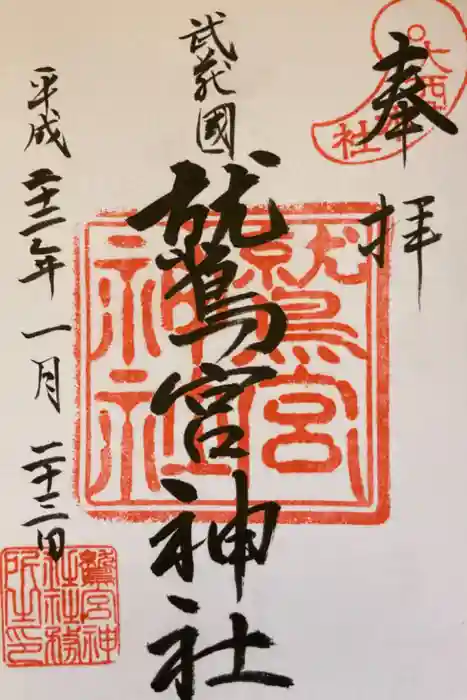 奉拝
武蔵國
鷲宮神社
平成二十二年一月二十三日
大酉
社
鷲宮
神社
鷲宮神
社社務
所之印